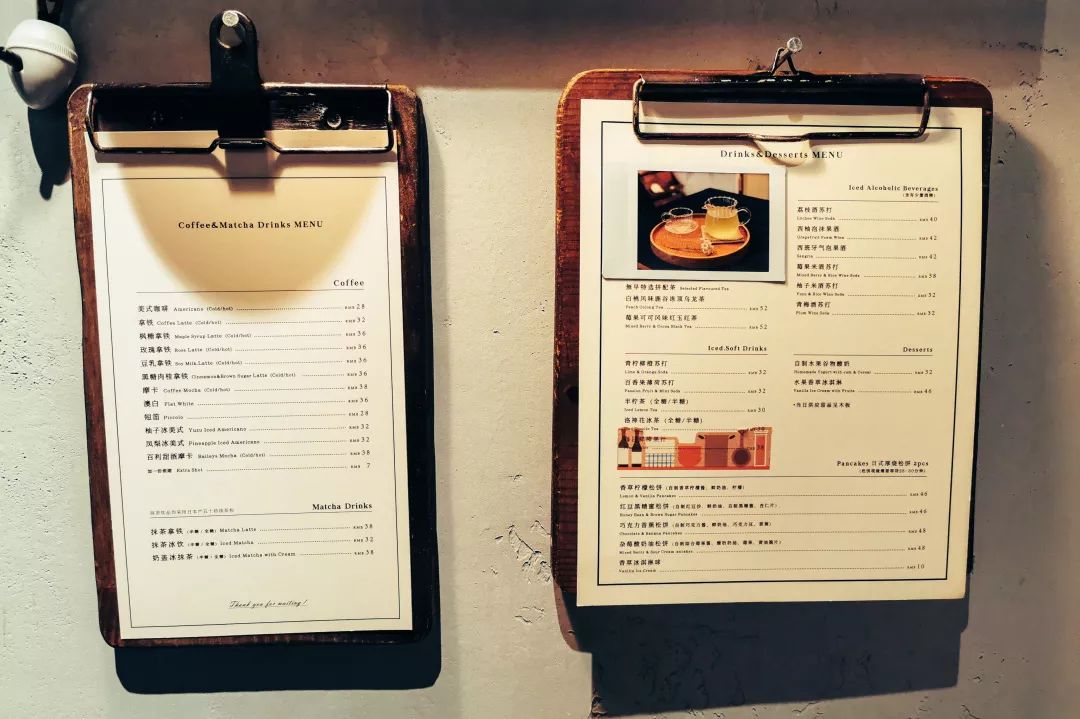 Coffee&Matcha Drinks MENU
Coffee
美式咖啡 Americano (Cold/hot) RMB 28
拿铁 Coffee Latte (Cold/hot) RMB 32
枫糖拿铁 Maple Syrup Latte (Cold/hot) RMB 36
玫瑰拿铁 Rose Latte (Cold/hot) RMB 36
豆乳拿铁 Soy Milk Latte (Cold/hot) RMB 36
黑糖肉桂拿铁 Cinnamon&Brown Sugar Latte (Cold/hot) RMB 36
摩卡 Coffee Mocha (Cold/hot) RMB 38
澳白 Flat White RMB 36
短笛 Piccolo RMB 28
柚子冰美式 Yuzu Iced Americano RMB 32
凤梨冰美式 Pineapple Iced Americano RMB 32
百利甜酒摩卡 Baileys Mocha (Cold/hot) RMB 38
加一份浓缩 Extra Shot RMB 7
Matcha Drinks
抹茶拿铁 (半糖/全糖) Matcha Latte RMB 38
抹茶冰饮 (半糖/全糖) Iced Matcha RMB 32
奶盖冰抹茶 (半糖/全糖) Iced Matcha with Cream RMB 38
Thank you for waiting!
Drinks&Desserts MENU
無早特选拼配茶 Selected Flavoured Tea
白桃风味鹿谷冻顶乌龙茶
Peach Oolong Tea RMB 52
莓果可可风味红玉红茶
Mixed Berry & Cocoa Black Tea RMB 52
Iced Soft Drinks
青柠柳橙苏打
Lime & Orange Soda RMB 32
百香果薄荷苏打
Passion Fruit & Mint Soda RMB 32
半柠茶 (全糖/半糖)
Iced Lemon Tea RMB 30
洛神花冰茶 (全糖/半糖)
Iced Alcoholic Beverages
(含有少量酒精)
荔枝酒苏打
Litchee Wine Soda RMB 40
西柚泡沫果酒
Grapefruit Foam Wine RMB 42
西班牙气泡果酒
Sangria RMB 42
莓果米酒苏打
Mixed Berry & Rice Wine Soda RMB 38
柚子米酒苏打
Yuzu & Rice Wine Soda RMB 32
青梅酒苏打
Plum Wine Soda RMB 32
Desserts
自制水果谷物酸奶
Homemade Yogurt with nuts & Cereal RMB 32
水果香草冰淇淋
Vanilla Ice Cream with Fruits RMB 46
*当日供应甜品见木板
Pancakes 日式厚烧松饼 2pcs
香草柠檬松饼 (自制香草柠檬酱、鲜奶油、柠檬)
Lemon & Vanilla Pancakes RMB 46
红豆黑糖蜜松饼
Honey Bean & Brown Sugar Pancakes RMB 46
巧克力香蕉松饼
Chocolate & Banana Pancakes RMB 48
杂莓酸奶油松饼
Mixed Berry & Sour Cream RMB 48
香草冰淇淋球
Vanilla Ice Cream RMB 10